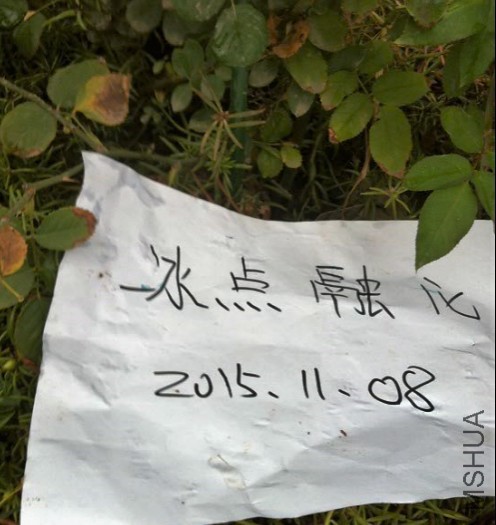 冰点融化
2015.11.08
MSHUA